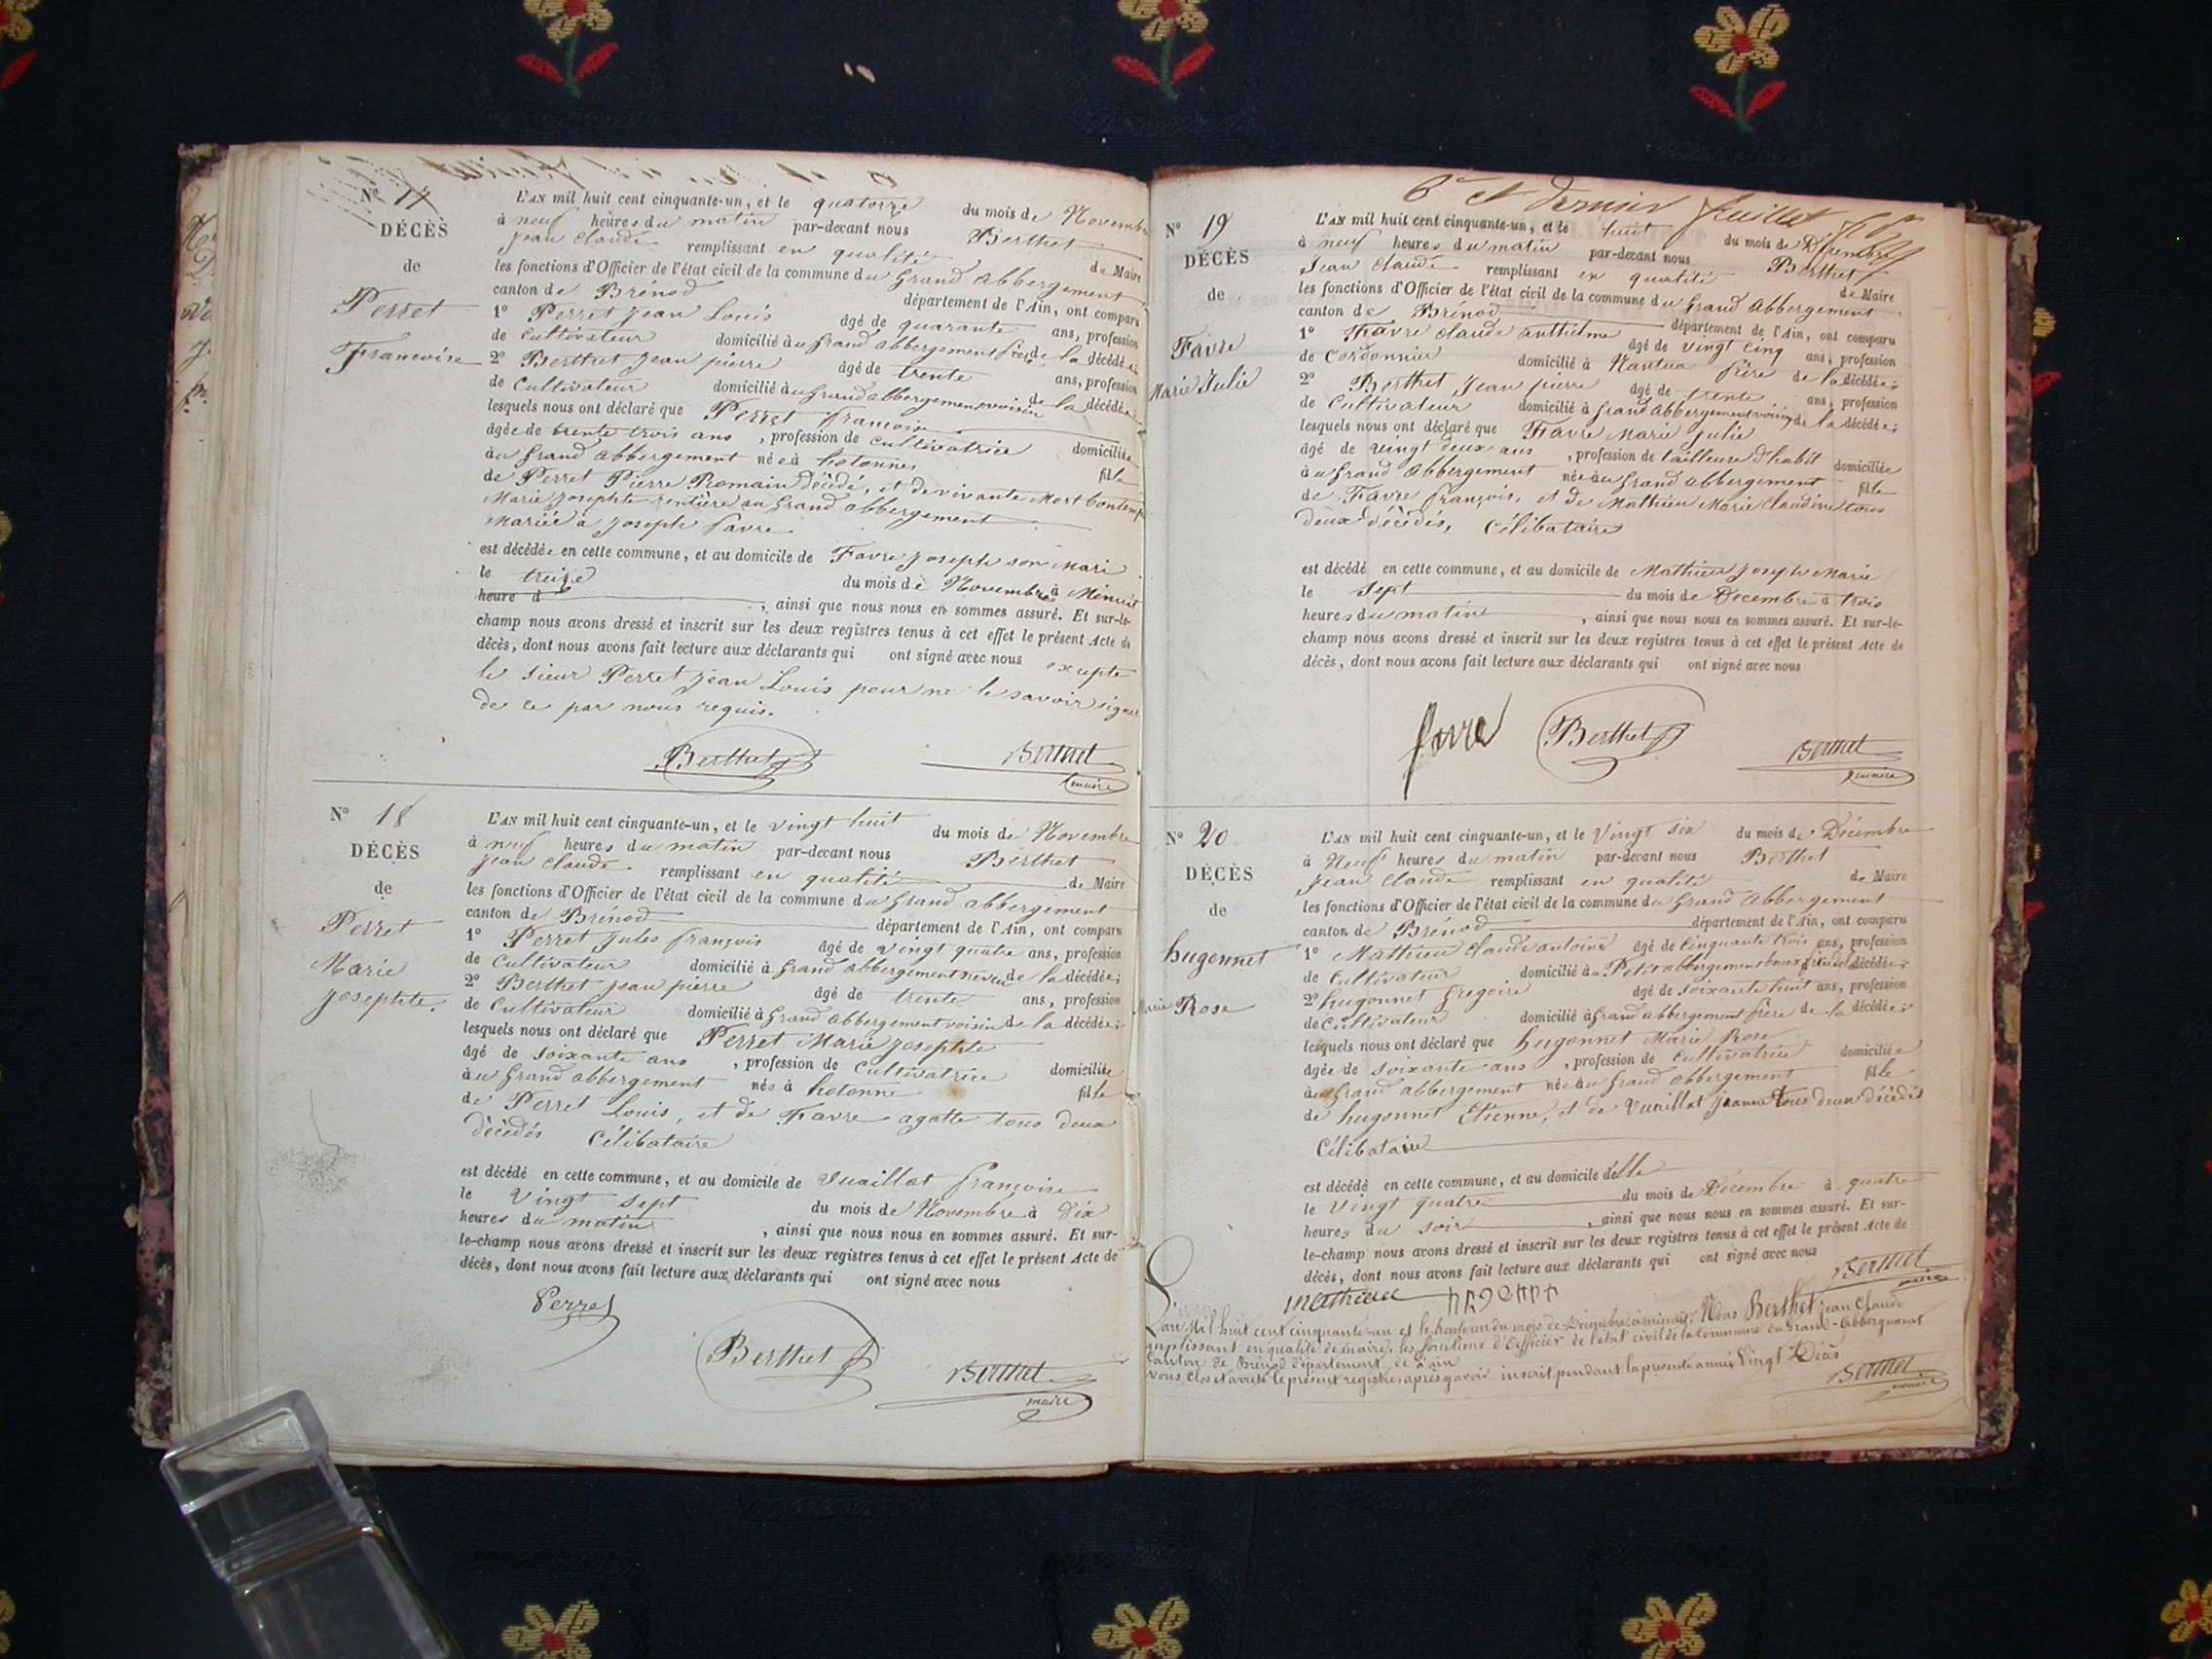 N° 17
DÉCÈS
de
Perret
Francoise
L'AN mil huit cent cinquante-un, et le quatorze du mois de Novembre
à neuf heures du matin par-devant nous Berthet
Jean Claude remplissant en qualité de Maire
les fonctions d'Officier de l'état civil de la commune du Grand Abbergement
canton de Brénod département de l'Ain, ont comparu
1° Perret Jean Louis âgé de quarante ans, profession
de Cultivateur domicilié au Grand Abbergement frère de la décédée;
2° Berthet Jean pierre âgé de trente ans, profession
de Cultivateur domicilié au Grand abbergement voisin de la décédée;
lesquels nous ont déclaré que Perret francoise
âgée de trente trois ans, profession de Cultivatrice domiciliée
au Grand Abbergement née à hotonnes fille
de Perret Pierre Romain décédé, et de vivante Mort Contemp
Marie Josephte rentière au Grand abbergement
Mariée à Joseph favre
est décédée en cette commune, et au domicile de Favre Joseph son Mari
le treize du mois de Novembre à Menuit
heure d , ainsi que nous nous en sommes assuré. Et sur-le-
champ nous avons dressé et inscrit sur les deux registres tenus à cet effet le présent Acte de
décès, dont nous avons fait lecture aux déclarants qui ont signé avec nous excepte
le sieur Perret Jean Louis pour ne le savoir signer
de ce par nous requis.
Berthet Berthet
maire
N° 18
DÉCÈS
de
Perret
Marie
Josephte.
L'AN mil huit cent cinquante-un, et le vingt huit du mois de Novembre
à neuf heures du matin par-devant nous Berthet
Jean Claude remplissant en qualité de Maire
les fonctions d'Officier de l'état civil de la commune du Grand abbergement
canton de Brenod département de l'Ain, ont comparu
1° Perret Jules françois âgé de vingt quatre ans, profession
de Cultivateur domicilié à Grand abbergement neveu de la décédée;
2° Berthet Jean pierre âgé de trente ans, profession
de Cultivateur domicilié à Grand abbergement voisin de la décédée;
lesquels nous ont déclaré que Perret Marie Josephte
âgé de soixante ans, profession de Cultivatrice domiciliée
au Grand abbergement née à hotonne fille
de Perret Louis, et de Favre agatte tous deux
décédés Célibataire
est décédé en cette commune, et au domicile de Vuaillat françoise
le Vingt sept du mois de Novembre à Dix
heures du matin, ainsi que nous nous en sommes assuré. Et sur-
le-champ nous avons dressé et inscrit sur les deux registres tenus à cet effet le présent Acte de
décès, dont nous avons fait lecture aux déclarants qui ont signé avec nous
Perret
Berthet Berthet
maire
6e et dernier feuillet
N° 19
DÉCÈS
de
Favre
Marie Julie
L'AN mil huit cent cinquante-un, et le huit du mois de Décembre
à neuf heures du matin par-devant nous Berthet
Jean Claude remplissant en qualité de Maire
les fonctions d'Officier de l'état civil de la commune du Grand Abbergement
canton de Brénod département de l'Ain, ont comparu
1° Favre Claude anthelme âgé de vingt cinq ans, profession
de Cordonnier domicilié à Nantua frère de la décédée;
2° Berthet Jean pierre âgé de trente ans, profession
de Cultivateur domicilié à Grand Abbergement voisin de la décédée;
lesquels nous ont déclaré que Favre Marie Julie
âgé de vingt deux ans, profession de tailleuse d'habit domiciliée
au Grand Abbergement née au Grand Abbergement fille
de Favre françois, et de Mathieu Marie Claudine tous
deux décédés, Célibataire
est décédé en cette commune, et au domicile de Mathieu Joseph Marie
le Sept du mois de Decembre à trois
heures du matin, ainsi que nous nous en sommes assuré. Et sur-le-
champ nous avons dressé et inscrit sur les deux registres tenus à cet effet le présent Acte de
décès, dont nous avons fait lecture aux déclarants qui ont signé avec nous
favre Berthet Berthet
maire
N° 20
DÉCÈS
de
hugonnet
Marie Rose
L'AN mil huit cent cinquante-un, et le Vingt six du mois de Décembre
à Neuf heures du matin par-devant nous Berthet
Jean Claude remplissant en qualité de Maire
les fonctions d'Officier de l'état civil de la commune du Grand Abbergement
canton de Brénod département de l'Ain, ont comparu
1° Mathieu Claude antoine âgé de Cinquante trois ans, profession
de Cultivateur domicilié au Petit abbergement de la décédée;
2° hugonnet Gregoire âgé de soixante huit ans, profession
de Cultivateur domicilié à Grand abbergement frère de la décédée;
lesquels nous ont déclaré que hugonnet Marie Rose
âgée de soixante ans, profession de Cultivatrice domiciliée
au Grand abbergement née au Grand abbergement fille
de hugonnet Etienne, et de Vuaillat Jeanne tous deux décédés
Célibataire
est décédé en cette commune, et au domicile d'elle
le Vingt quatre du mois de Décembre à quatre
heures du soir, ainsi que nous nous en sommes assuré. Et sur-
le-champ nous avons dressé et inscrit sur les deux registres tenus à cet effet le présent Acte de
décès, dont nous avons fait lecture aux déclarants qui ont signé avec nous
Mathieu Berthet
maire
L'an Mil huit cent cinquante-un et le trente un du mois de Décembre à minuit Nous Berthet Jean Claude
remplissant en qualité de maire, les fonctions d'officier de l'état civil de la Commune du Grand-Abbergement
Canton de Brénod département de l'ain
vons clos et arrêté le présent registre après y avoir inscrit pendant la presente année Vingt Décès
Berthet
maire